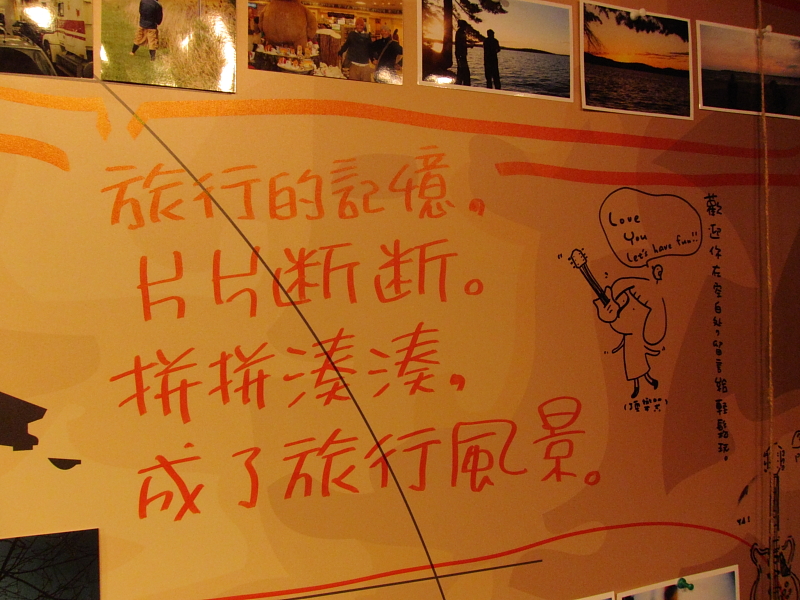 旅行的記憶，
片片断断。
拼拼湊湊，
成了旅行風景。
Love
You
Let's have fun!!
歡迎你在空白處，留言給輕鬆玩。